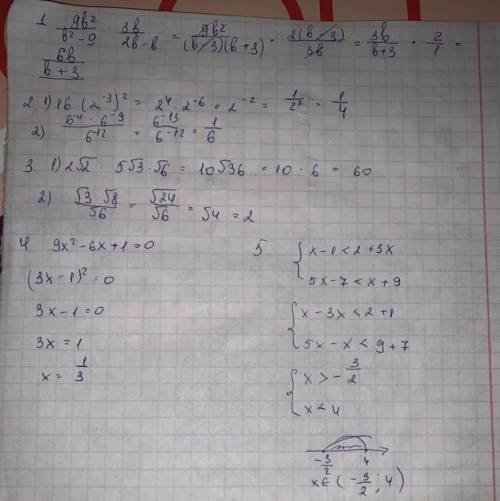 1. 9b²/(b²-9) : 3b/(2b-6) = 9b²/((b-3)(b+3)) · 2(b-3)/3b = 3b/(b+3) · 2/1 =
6b/(b+3)
2. 1) 16 · (2⁻³)² = 2⁴ · 2⁻⁶ = 2⁻² = 1/2² = 1/4
2) (6⁻⁴ · 6⁻⁹)/6⁻¹² = 6⁻¹³/6⁻¹² = 1/6
3. 1) 2√2 · 5√3 · √6 = 10√36 = 10 · 6 = 60
2) (√3 · √8)/√6 = √24/√6 = √4 = 2
4 9x² - 6x + 1 = 0
(3x - 1)² = 0
3x - 1 = 0
3x = 1
x = 1/3
5. { x - 1 < 2 + 3x
5x - 7 < x + 9
{ x - 3x < 2 + 1
5x - x < 9 + 7
{ x > - 3/2
x < 4
-3/2 4
x ∈ (-3/2 ; 4)